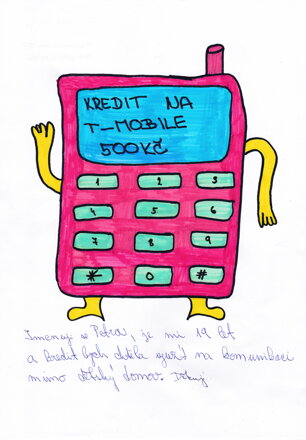 KREDIT NA
T-MOBILE
500KČ
1 2 3
4 5 6
7 8 9
* 0 #
Jmenuji se Petra, je mi 19 let
a kredit bych chtěla využít na komunikaci
mimo dětský domov. Děkuji.